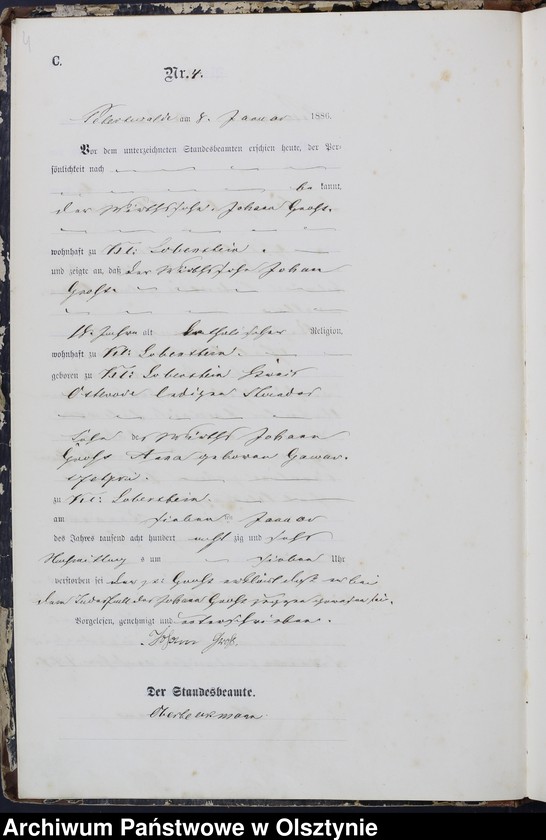 4
C.
Nr. 4.
am 8. Januar 1886.
Vor dem unterzeichneten Standesbeamten erschien heute, der Per-
sönlichkeit nach
be kannt,
der Wirthssohn Johann
wohnhaft zu Kl: Lobenstein
und zeigte an, daß der Wirthssohn Johann
18 Jahre alt katholischer Religion,
wohnhaft zu Kl: Lobenstein.
geboren zu Kl: Lobenstein Kreis
Ortelsburg ledigen Standes
Sohn des Wirths Johann
Anna geboren
zu Kl: Lobenstein.
am sieben ten Januar
des Jahres tausend acht hundert acht zig und sechs
Nachmittag s um sieben Uhr
verstorben sei
Vorgelesen, genehmigt und unterschrieben.
Johann
Der Standesbeamte.
Archiwum Państwowe w Olsztynie